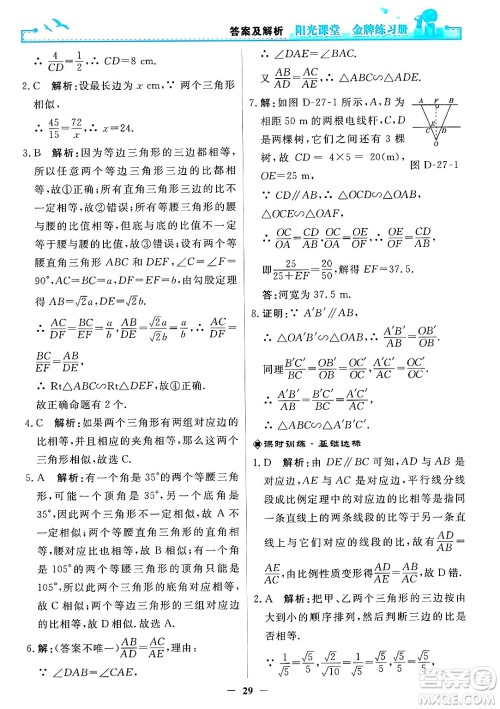 答案及解析 阳光课堂 金牌练习册
∴ 4/CD = 1/2, ∴ CD=8 cm.
2.C 解析:设最长边为 x cm,∵ 两个三角形
相似,
∴ 45/15 = 72/x, ∴ x=24.
3.B 解析:因为等边三角形的三边都相等,
所以任意两个等边三角形三边的比相等,
故①正确;因为直角三角形边的比不一
定相等,故②错误;所以等腰三角形的
腰与腰的比值相等,但底与底的比值不一定
等于腰与腰的比值,故③错误;设有两个等
腰直角三角形ABC和DEF,∠C=∠F=
90°,设 AC=BC=a,DF=EF=b,由勾股定理可
得 AB=√2a,DE=√2b,
∴ AC/DF = BC/EF = a/b, AB/DE = √2a/√2b = a/b, ∴ AC/DF =
BC/EF = AB/DE,
∴ Rt△ABC∽Rt△DEF,故④正确.
故正确的有 2 个.
4.C 解析:如果两个三角形有两组对应边的
比相等,并且相应的夹角相等,那么这两个
三角形相似,故选 C.
5.A 解析:有一个角是 35°的两个等腰三角
形中,35°的角可能是顶角,也可能是底
角,因此两个三角形不一定相似,故 A 符合题
意;两个等腰直角三角形的直角相等,
腰与腰对应成比例,故 B 相似;有一个角是
105°的两个等腰三角形的顶角只能是
105°,故两个三角形的底角对应相等,
故 C 相似;两个等边三角形的三组对应边的
比相等,故 D 相似.
6.解:(答案不唯一) AB/AD = AC/AE,
∵ ∠DAB=∠CAE,
∴ ∠DAE=∠BAC.
又∵ AB/AD = AC/AE, ∴ △ABC∽△ADE.
7.解:如图 D-27-1,∵
相距 20 m 的两根电线杆,
两棵树,它们之间还有 3 棵
树,∴ CD=4×5=20(m),
OE=25 m.
图 D-27-1
∵ CD∥AB,∴ △OCD∽△OAB,
△OCE∽△OAF,
∴ OC/OA = CD/AB, OC/OA = OE/OF, ∴ OE/OF = CD/AB,
即 25/(25+EF) = 20/50,解得 EF=37.5.
答:河宽为 37.5 m.
8.证明:∵ A′B′∥AB,
∴ △OA′B′∽△OAB,∴ A′B′/AB = OB′/OB.
同理 B′C′/BC = OB′/OB, A′C′/AC = OA′/OA = OB′/OB,
∴ A′B′/AB = B′C′/BC = A′C′/AC,
∴ △A′B′C′∽△ABC.
课时训练·基础达标
1.D 解析:由 DE∥BC 可知,AD与AB是
对应边,AE与AC是对应边,根据平行线分线
段成比例定理可知对应线段的比应等于
同一直线上的线段与线段的比,∴ AD/AB =
AE/AC,由比例性质变形得 AB/AD = AC/AE,故 D 错.
2.A 解析:把甲、乙两个三角形的三边按由
大到小顺序排列,然后判断三边的比
是否相等.
∵ 1/√5 = √5/5, √2/√10 = √5/5, √5/5 = √5/5,
29
答案圈